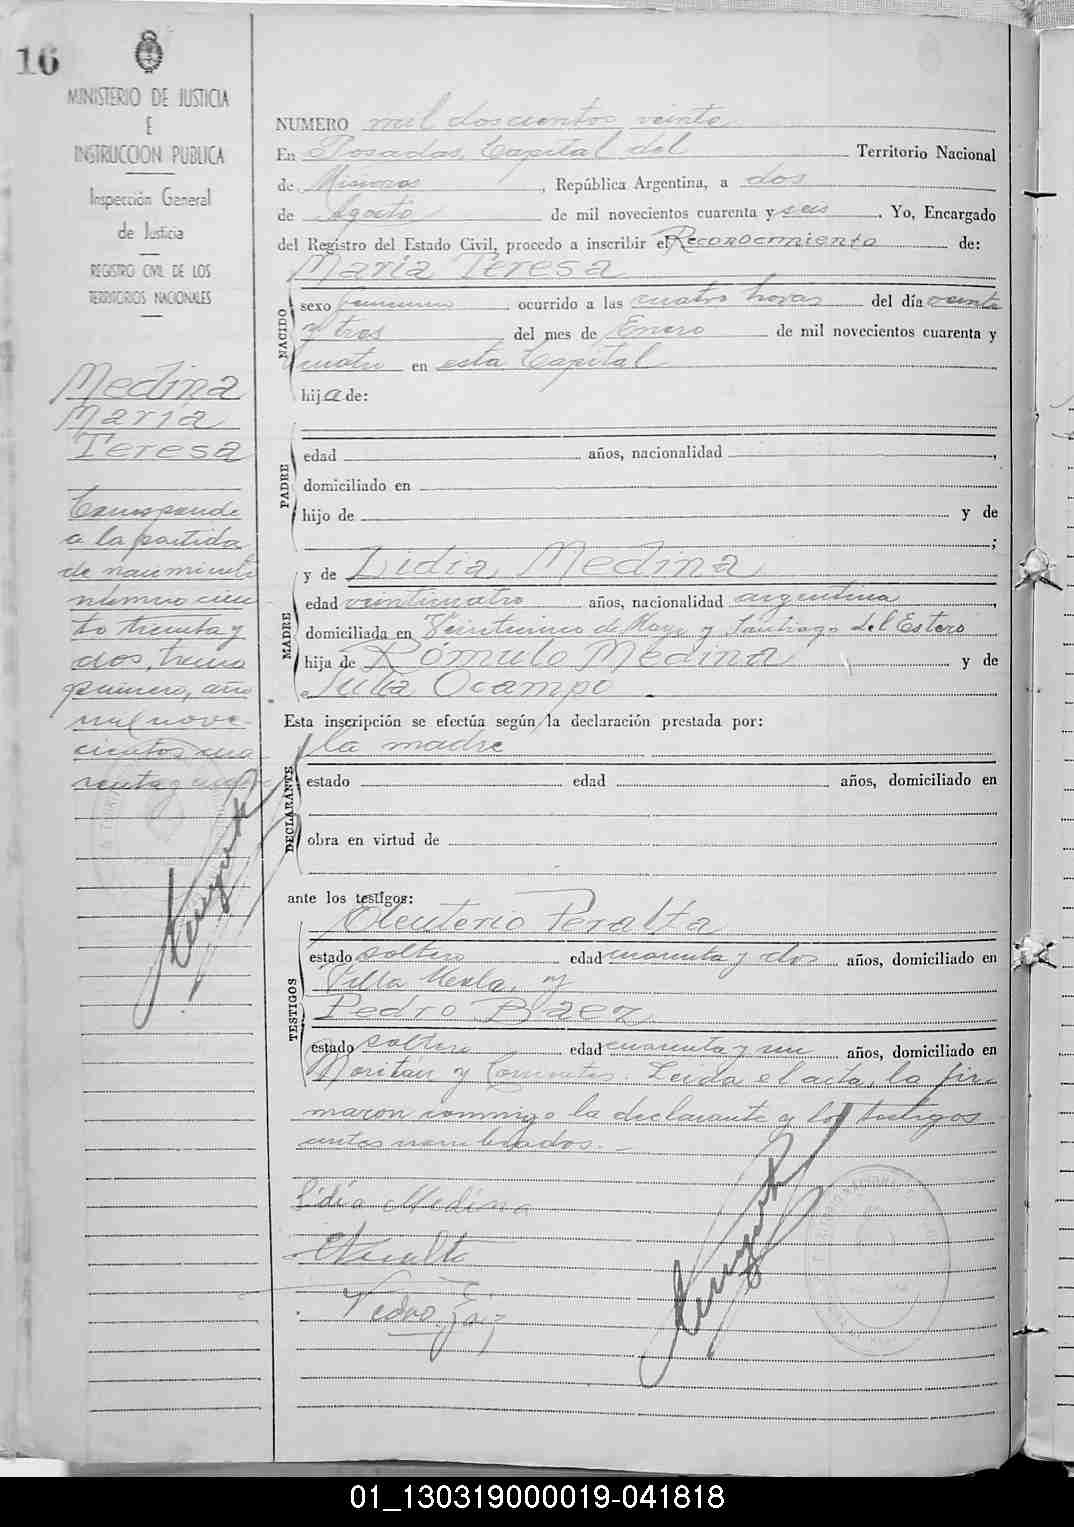 16
MINISTERIO DE JUSTICIA
E
INSTRUCCION PUBLICA
Inspección General
de Justicia
REGISTRO CIVIL DE LOS
TERRITORIOS NACIONALES
Medina
María
Teresa
Corresponde
a la partida
de nacimiento
número cien
to treinta y
dos, tomo
primero, año
mil nove-
cientos cua
renta y cuatro
NUMERO mil doscientos veinte
En Posadas, Capital del Territorio Nacional
de Misiones, República Argentina, a dos
de Agosto de mil novecientos cuarenta y seis. Yo, Encargado
del Registro del Estado Civil, procedo a inscribir el Reconocimiento de:
María Teresa
NACIDO
sexo femenino ocurrido a las cuatro horas del día veinte
y tres del mes de Enero de mil novecientos cuarenta y
cuatro en esta Capital
hija de:
PADRE
edad años, nacionalidad ,
domiciliado en
hijo de y de
;
MADRE
y de Lidia Medina
edad veinticuatro años, nacionalidad argentina,
domiciliada en Veinticinco de Mayo y Santiago del Estero
hija de Rómulo Medina y de
Julia Ocampo.
Esta inscripción se efectúa según la declaración prestada por:
DECLARANTE
la madre
estado edad años, domiciliado en
obra en virtud de
ante los testigos:
TESTIGOS
Eleuterio Peralta
estado soltero edad cuarenta y dos años, domiciliado en
Villa y
Pedro Báez
estado soltero edad cuarenta y un años, domiciliado en
y Corrientes. Leida el acta, la fir
maron conmigo la declarante y los testigos
antes nombrados.-
Lidia Medina
EPeralta
Pedro Báez
01_130319000019-041818